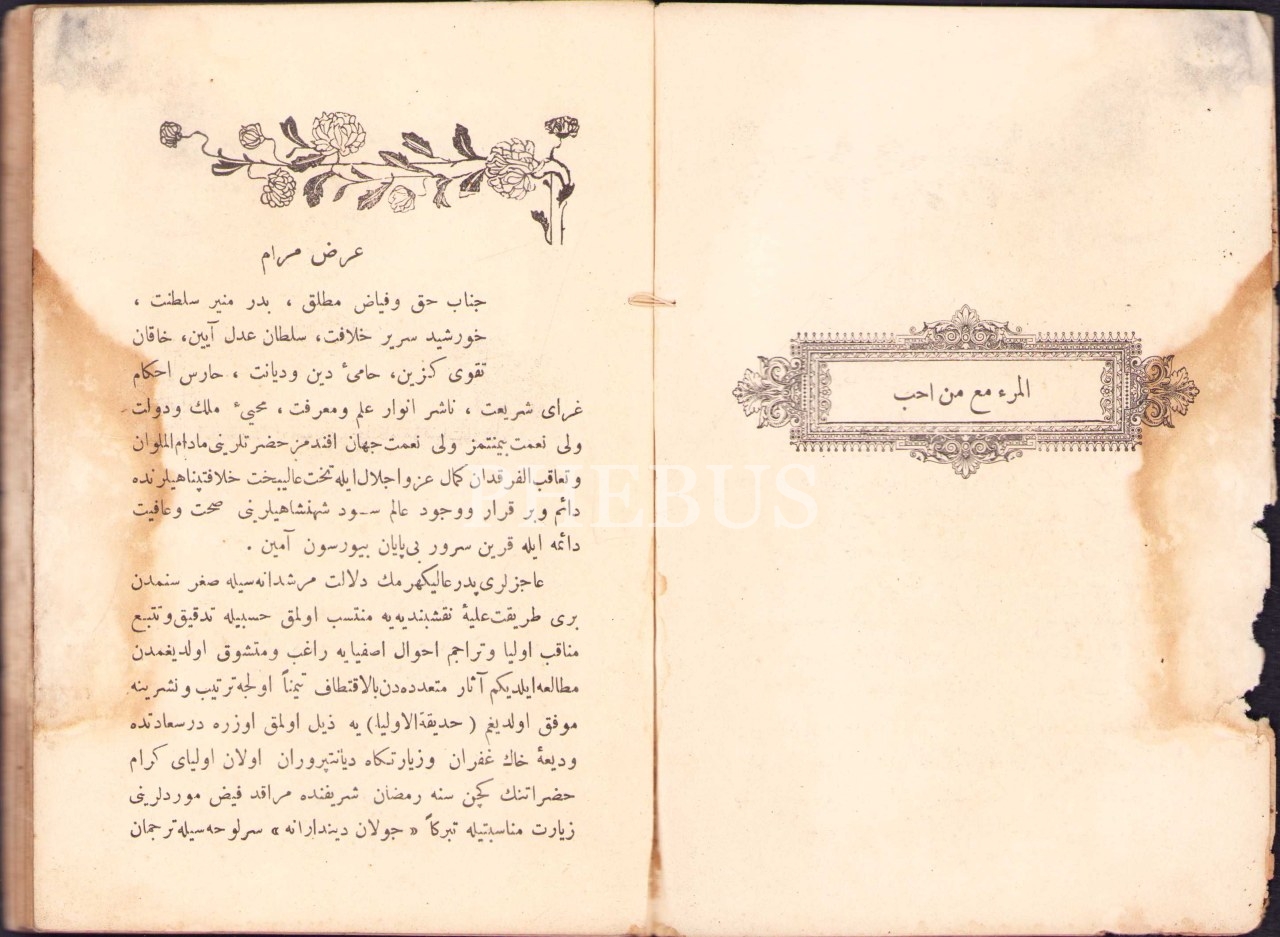 المرء مع من احب
عرض مرام
جناب حق وفياض مطلق ، بدر منير سلطنت ،
خورشيد سرير خلافت، سلطان عدل آيين، خاقان
تقوى كزين، حامىٔ دين وديانت ، حارس احكام
غراى شريعت ، ناشر انوار علم ومعرفت ، محيىٔ ملك ودولت
ولى نعمت بيمنتمز ولى نعمت جهان افندمز حضرتلرينى مادام الملوان
وتعاقب الفرقدان كمال عز واجلال ايله تخت عاليبخت خلافتپناهيلرنده
دائم وبر قرار ووجود عالم سود شهنشاهيلرينى صحت وعافيت
دائمه ايله قرين سرور بى پايان بيورسون آمين .
عاجزلرى پدر عاليكهرمك دلالت مرشدانه سيله صغر سنمدن
برى طريقت عليۀ نقشبنديه يه منتسب اولمق حسبيله تدقيق وتتبع
مناقب اوليا وتراجم احوال اصفيايه راغب ومتشوق اولديغمدن
مطالعه ايلديكم آثار متعدده دن بالاقتطاف تيمناً اولجه ترتيب ونشرينه
موفق اولديغم ( حديقة الاوليا ) يه ذيل اولمق اوزره درسعادتده
وديعۀ خاك غفران وزيارتكاه ديانتپروران اولان اولياى كرام
حضراتنك كچن سنه رمضان شريفنده مراقد فيض موردلرينى
زيارت مناسبتيله تبركاً « جولان ديندارانه » سرلوحه سيله ترجمان
PHEBUS